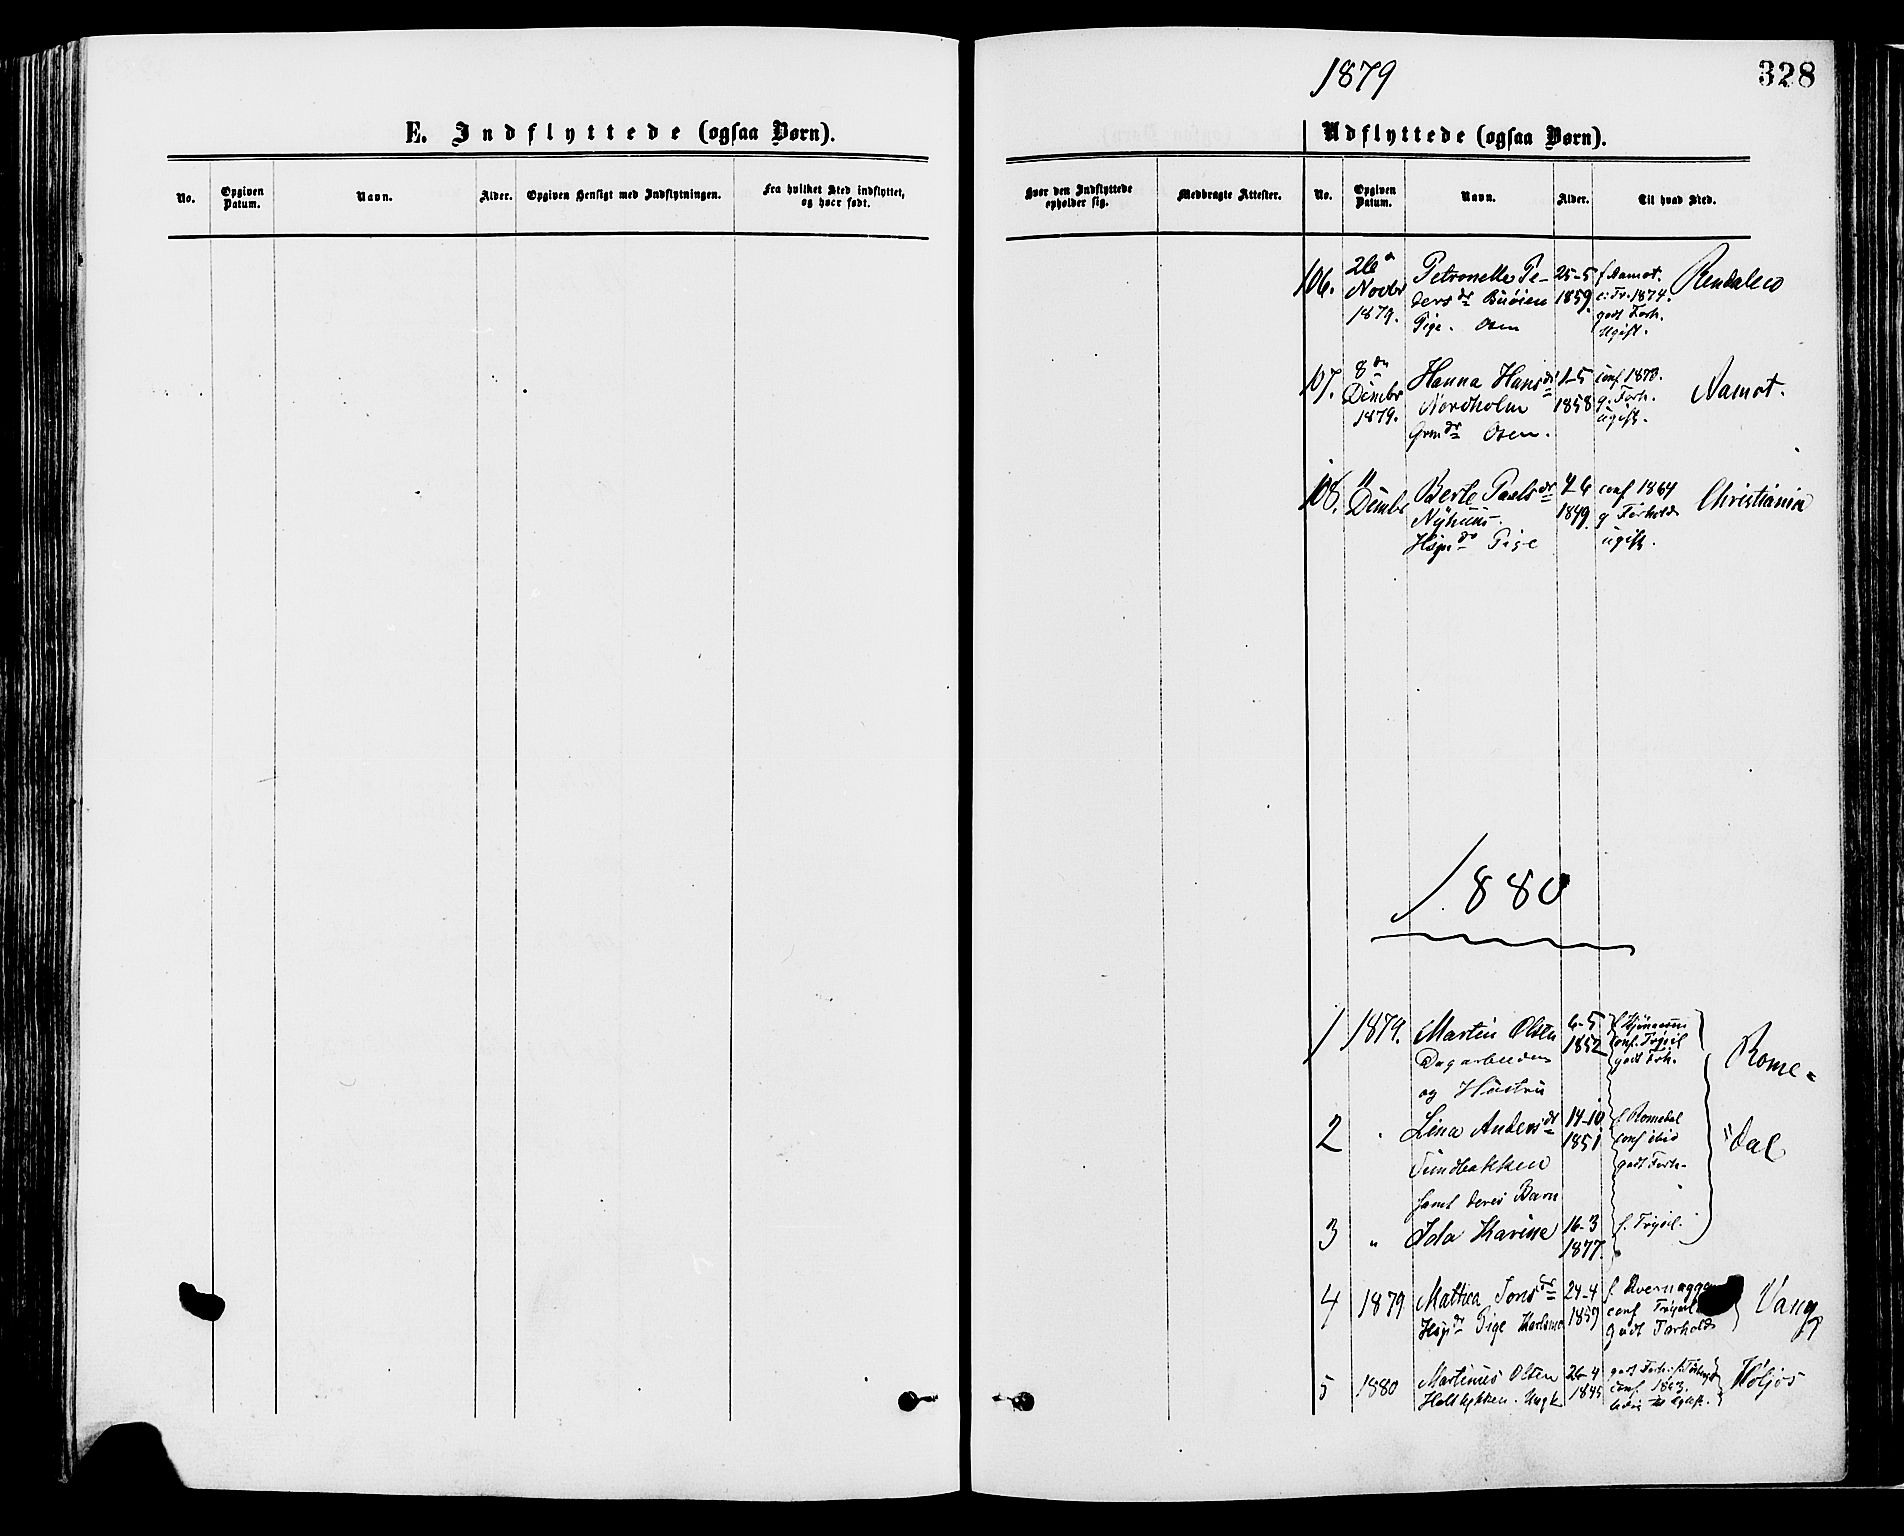 1879
328
E. Indflyttede (ogsaa Børn).
Udflyttede (ogsaa Børn).
No.
Opgiven Datum.
Navn.
Alder.
Opgiven Hensigt med Indflytningen.
Fra hvilket Sted indflyttet,
og hvor født.
Hvor den Indflyttede
opholder sig.
Medbragte Attester.
No.
Opgiven Datum.
Navn.
Alder.
Til hvad Sted.
106. 26 Novbr 1879. Petronelle Pe-
ders dr Osen
Pige.
25-5 1859.
f Aamot.
1874.
godt Forh.
Ugift.
Rendalen
107. 8 Dcmbr 1879. Hanna Hans dr
Nordholm
Osen.
1-5 1858
conf 1873.
g. Forh.
ugift.
Aamot.
108. 11 Dcmbr Berte Paals dr
Nyhuus.
Pige
4-6 1849.
conf 1864
g Forhold
ugift.
Christiania
1880
1 1879. Martin Olsen
Dagarbeider
og Hustru
6-5 1852
conf. Trysil
godt Forh.
Rome=
2 Lina Anders dt
samt deres Barn
14-10 1851
f. Romedal
conf ibid
godt Forh.
"dal
3 " Ida Karine
16-3 1877.
f. Trysil.
4 1879 Mathea Jons dr
Pige
24-4 1859
conf Trysil
godt Forhold
Vang
5 1880 Martinus Olsen
Ungk
26-4 1845
godt Forh.
conf. 1863.
Høljøs